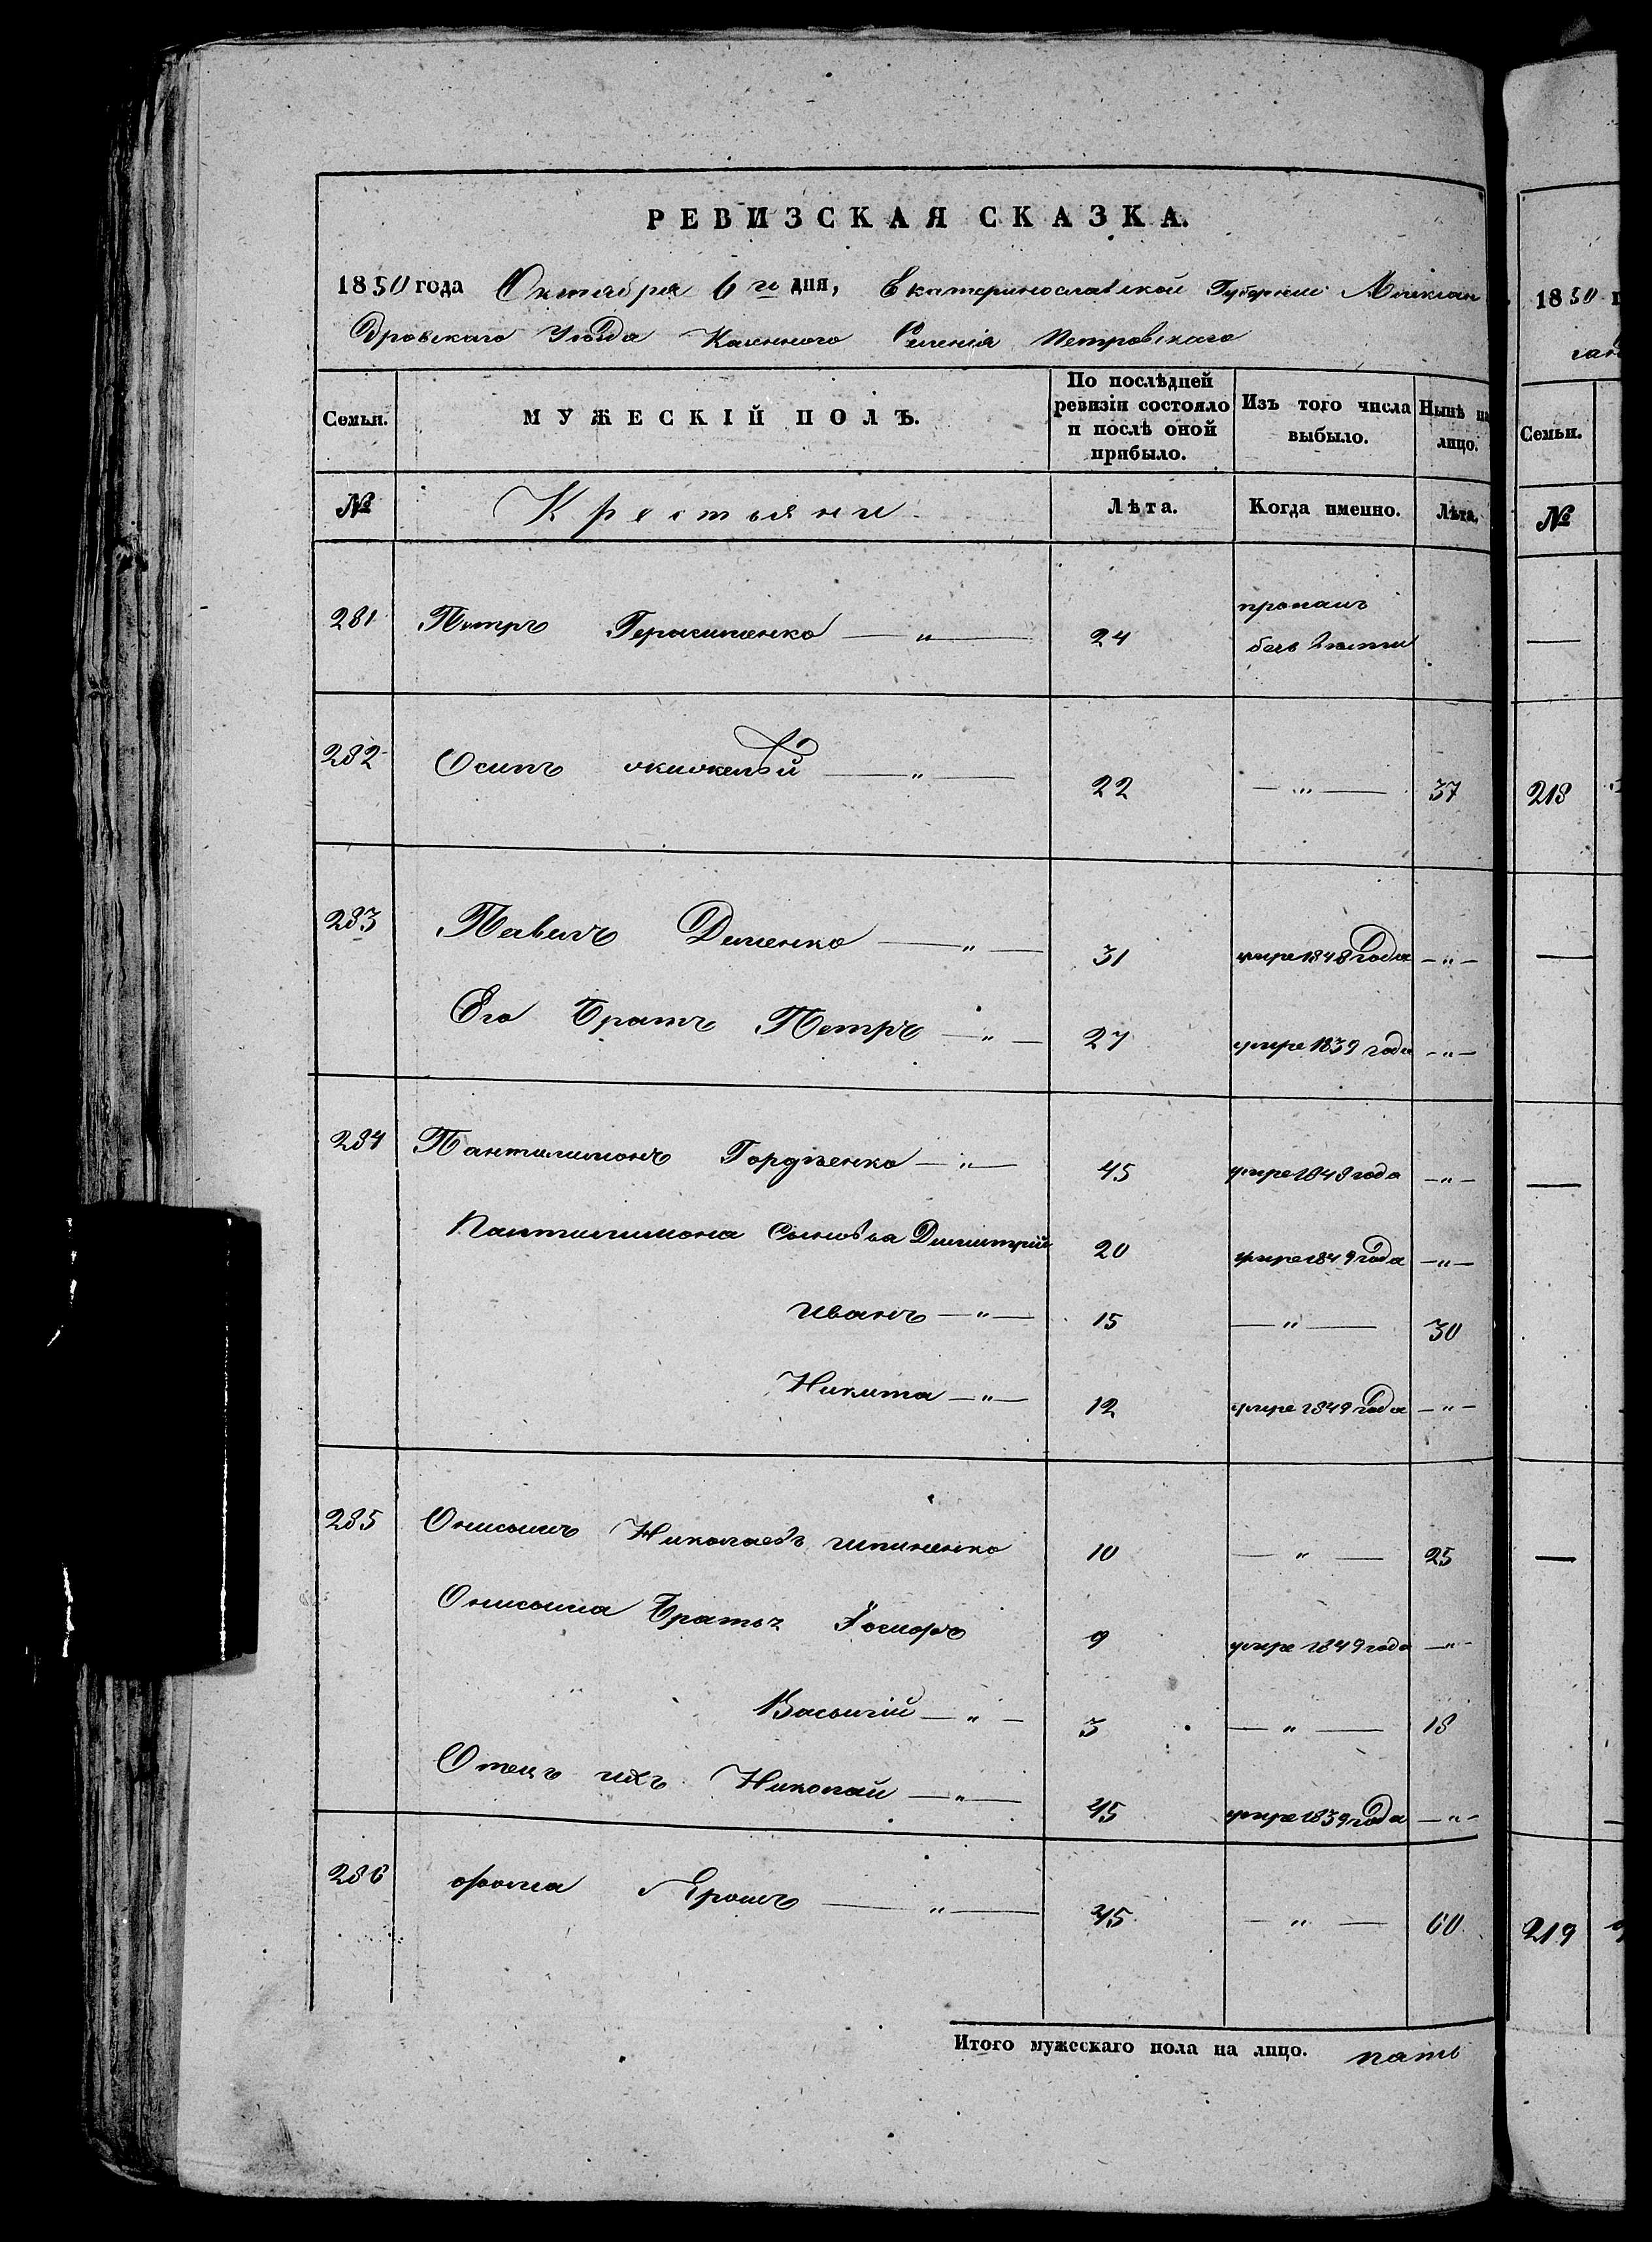 РЕВИЗСКАЯ СКАЗКА.
1850 года Октября 6го дня, Екатеринославской Губернии Алексан
дровскаго Уѣзда Казенного Селенія Петровскаго
Семьи.
МУЖЕСКІЙ ПОЛЪ.
По послѣдней ревизіи состояло и послѣ оной прибыло.
Изъ того числа выбыло.
Нынѣ на лицо.
№
Крестьяне
Лѣта.
Когда именно.
Лѣта.
281 Петръ Герасименко — " — 24 пропалъ
безъ вѣсти
282 Осипъ — " — 22 — " — 37
283 Павелъ Деменко — " — 31 умре 1848 года — " —
Его Братъ Петръ — " — 27 умре 1839 года — " —
284 Пантилимонъ Гордіенко — " — 45 умре 1848 года — " —
Пантилимона Сыновья Димитрій 20 умре 1849 года — " —
Иванъ — " — 15 — " — 30
Никита — " — 12 умре 1849 года — " —
285 Онисимъ Николаевъ 10 — " — 25
Онисима Братья 9 умре 1849 года — " —
Василій — " — 3 — " — 18
Отецъ ихъ Николай — " — 45 умре 1839 года — " —
286 Фома Ярошъ — " — 45 — " — 60
Итого мужескаго пола на лицо. пять
1850 г
Семьи.
№
—
218
—
—
—
219